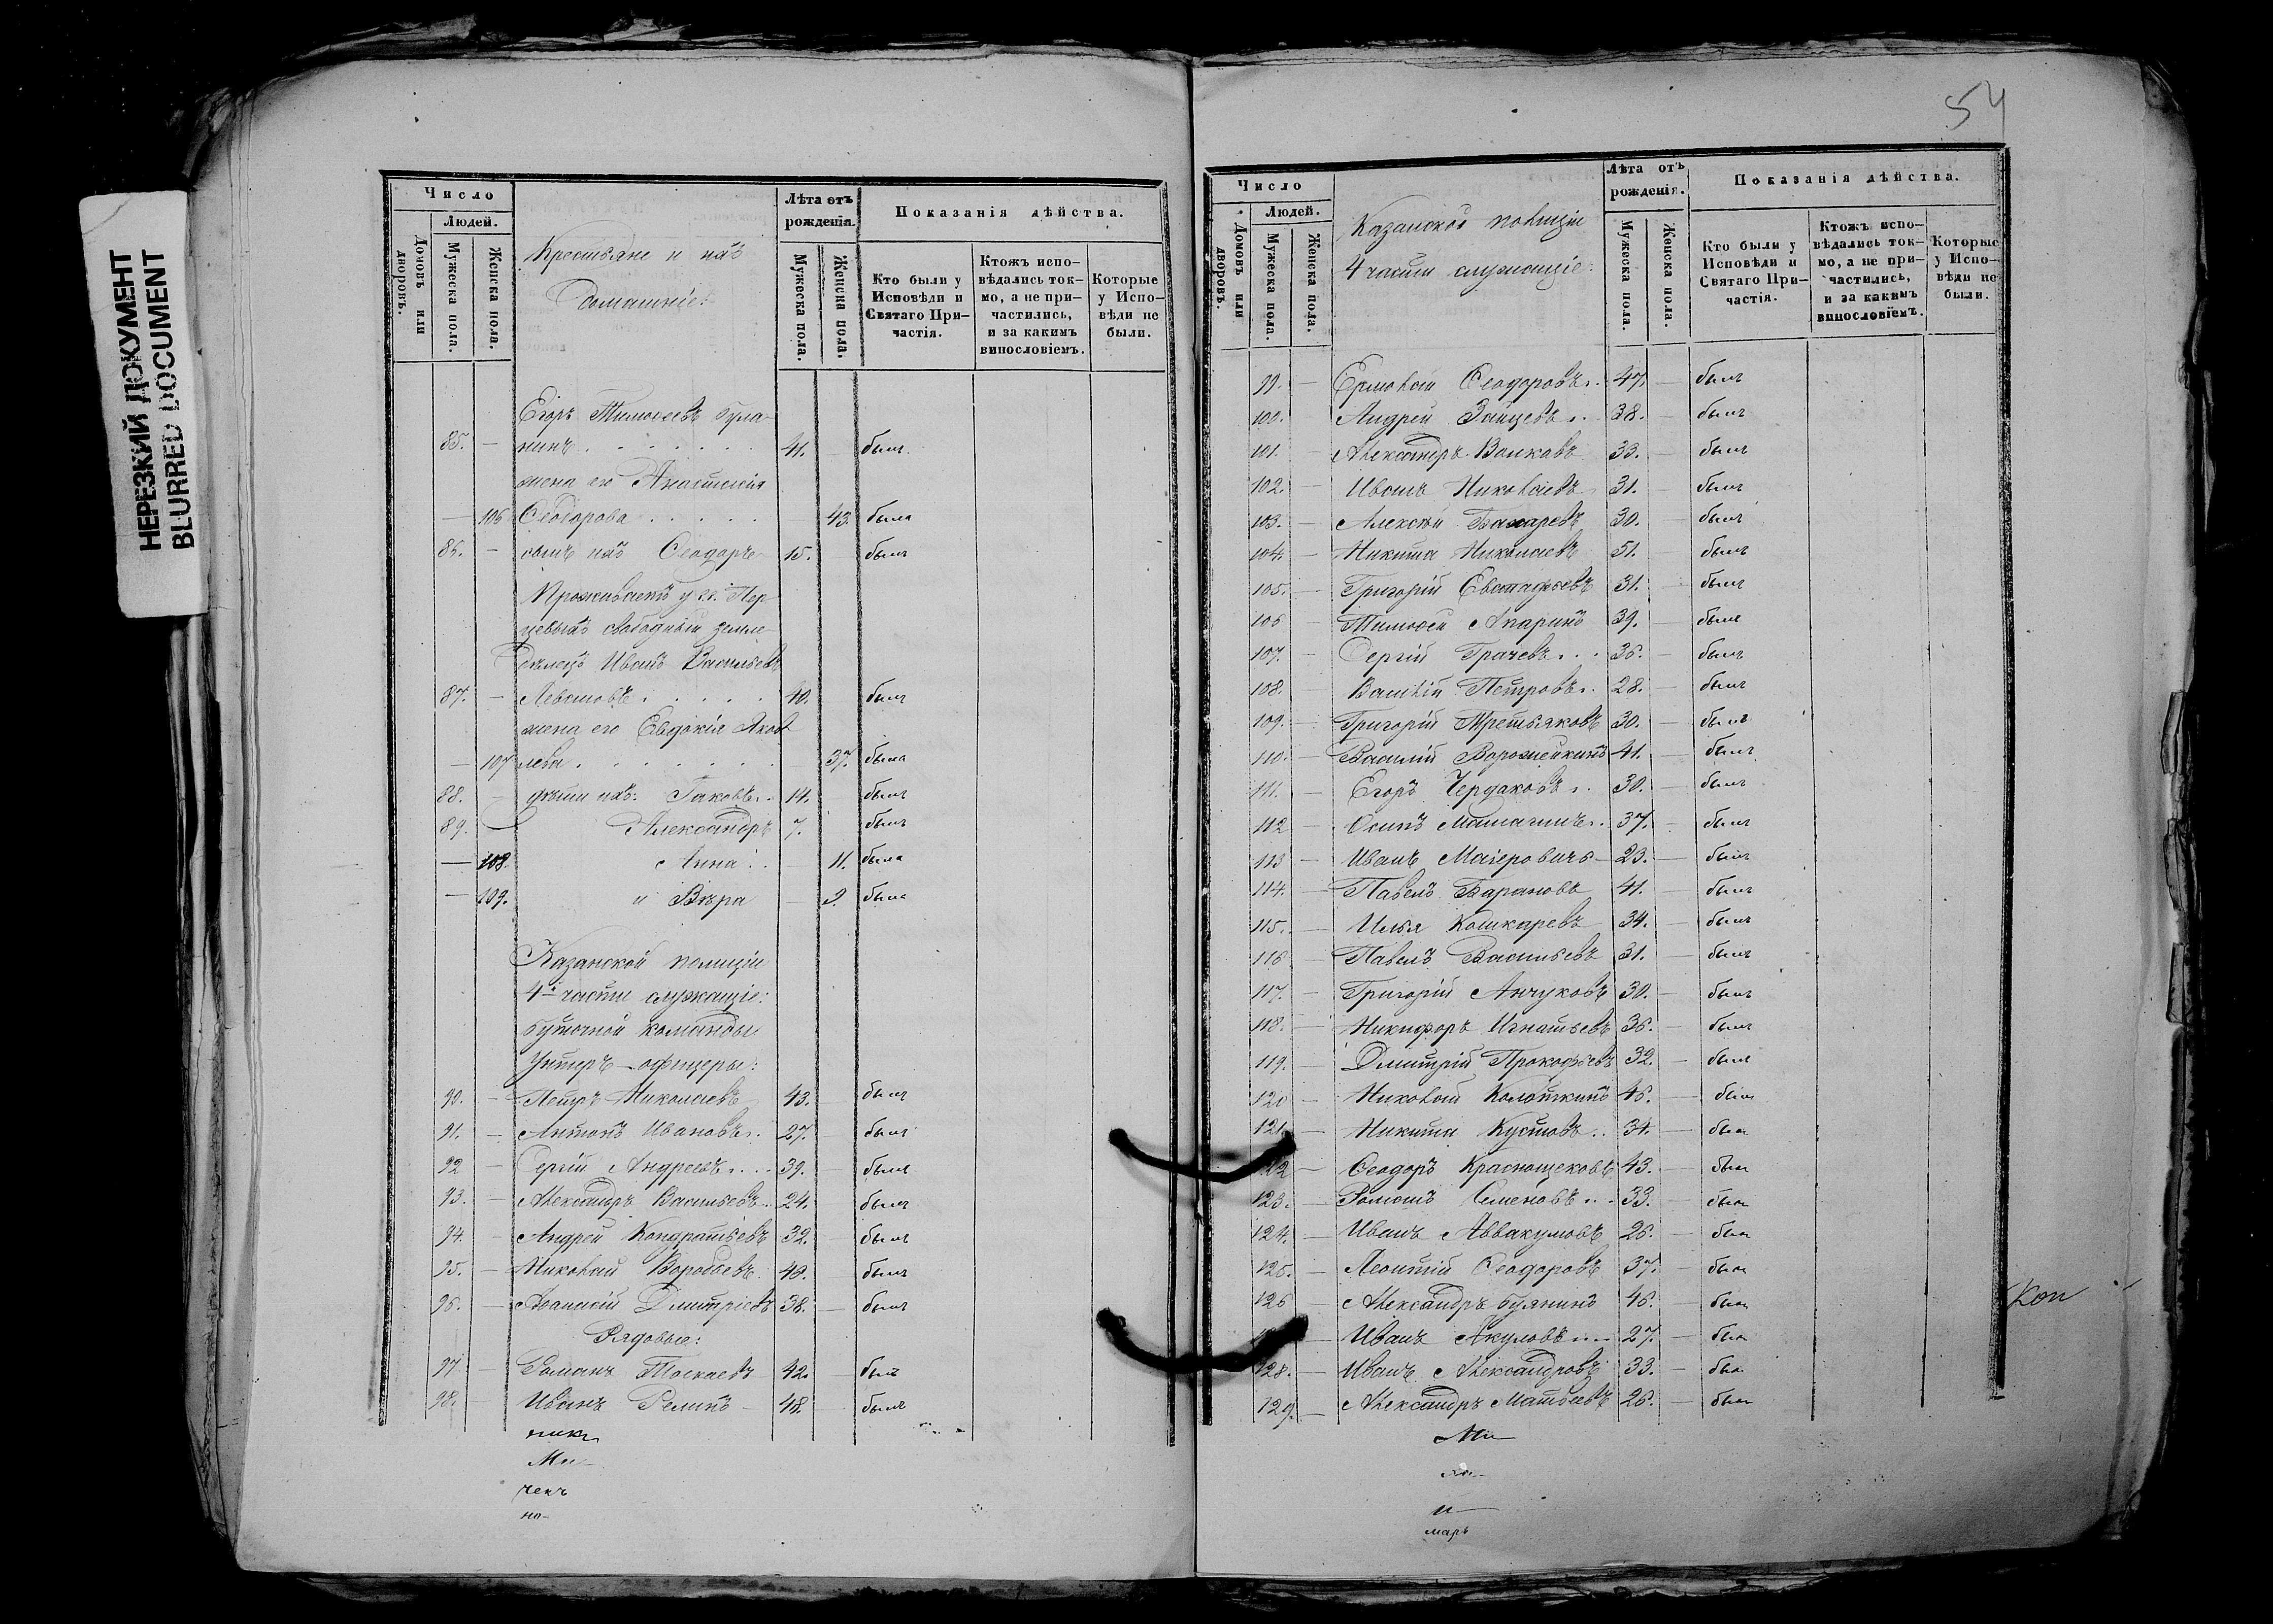 НЕРЕЗКИЙ ДОКУМЕНТ
BLURRED DOCUMENT
Число
Людей.
Домовъ или дворовъ.
Мужеска пола.
Женска пола.
Крестьяне и ихъ
домашніе:
Лѣта отъ
рожденія.
Мужеска пола.
Женска пола.
Показанія дѣйства.
Кто были у
Исповѣди и
Святаго При-
частія.
Ктожъ испо-
вѣдались ток-
мо, а не при-
частились,
и за какимъ
винословіемъ.
Которые
у Испо-
вѣди не
были.
Егоръ Тимоѳеевъ
85. — нинъ 41. былъ
жена его Анастасія
— 106 Ѳеодорова 43. была
86. — сынъ ихъ Ѳеодоръ 15. былъ
Проживаетъ у
свободный земле-
делецъ Иванъ Васильевъ
87. — Левашовъ 40. былъ
жена его Евдокія Яков-
— 107 лева 37. была
88. — дѣти ихъ: Іаковъ 14. былъ
89. — Александръ 7. былъ
— 108. Анна 11. была
— 109. и Вѣра 9. была
Казанской полиціи
4й части служащіе:
будочной команды
Унтеръ-офицеры:
90. — Петръ Николаевъ 43. былъ
91. — Антонъ Ивановъ 27. былъ
92 — Сергій Андреевъ 39. былъ
93. — Александръ Васильевъ 24. былъ
94. — Андрей Кондратьевъ 32. былъ
95. — Николай Воробьевъ былъ
96. — Аѳанасій Дмитріевъ 38. былъ
Рядовые:
97. — Романъ Тоскаевъ 42. былъ
98. — Иванъ Релинъ 48. былъ
никъ
Ми-
ченъ
но-
54
Число
Людей.
Домовъ или дворовъ.
Мужеска пола.
Женска пола.
Казанской полиціи
4 части служащіе:
Лѣта отъ
рожденія.
Мужеска пола.
Женска пола.
Показанія дѣйства.
Кто были у
Исповѣди и
Святаго При-
частія.
Ктожъ испо-
вѣдались ток-
мо, а не при-
частились,
и за какимъ
винословіемъ.
Которые
у Испо-
вѣди не
были.
99. — Ермолай Ѳеодоровъ 47. — былъ
100. — Андрей Зайцевъ 38. — былъ
101. — Александръ Волковъ 33. — былъ
102. — Иванъ Николаевъ 31. — былъ
103. — Алексѣй 30. — былъ
104. — Никита Николаевъ 51. — былъ
105. — Григорій Евстафьевъ 31. — былъ
106 — Тимоѳей Апаринъ 39. — былъ
107. — Сергій Грачевъ 36. — былъ
108. Василій Петровъ 28. — былъ
109. — Григорій Третьяковъ 30. — былъ
110. — Василій Ворожейкинъ 41. — былъ
111. — Егоръ Чердаковъ 30. — былъ
112 — Осипъ 37. — былъ
113 — Иванъ 23. — былъ
114. — Павелъ Барановъ 41. — былъ
115. — Илья Кошкаревъ 34. — былъ
116 — Павелъ Васильевъ 31. — былъ
117. — Григорій Анчуковъ 30. — былъ
118. — Никифоръ Игнатьевъ 36. — былъ
119. — Дмитрій Прокофьевъ 32. — былъ
120 — Николай Колоткинъ 46. — былъ
121. — Никита Кустовъ 34. — былъ
122 — Ѳеодоръ Краснощековъ 43. — былъ
123. — Романъ Семеновъ 33. — былъ
124. — Иванъ Аввакумовъ 26. — былъ
125. — Леонтій Ѳеодоровъ 37. — былъ
126 — Александръ Булнинъ 46. — былъ
— Иванъ Акуловъ 27. — былъ
128. — Иванъ Александровъ 33. — былъ
129. — Александръ Матвеевъ 26. — былъ
Ми-
и-
марь
Кон